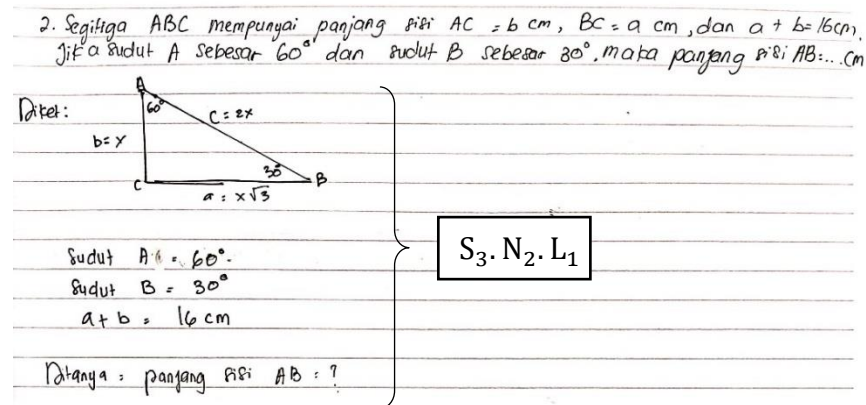 2. Segitiga ABC mempunyai panjang sisi AC = b cm, BC = a cm, dan a + b = 16 cm.
Jika sudut A sebesar 60° dan sudut B sebesar 30°. maka panjang sisi AB = ... cm
Diket :
A
60°
c = 2x
b = x
30°
C
B
a = x√3
S₃. N₂. L₁
Sudut A = 60°.
Sudut B = 30°
a + b = 16 cm
Ditanya : panjang sisi AB = ?